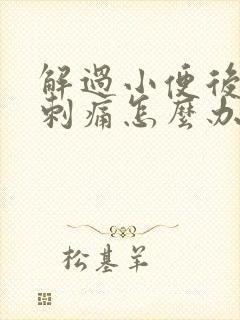 解過小便後
刺痛怎麼办
松基羊